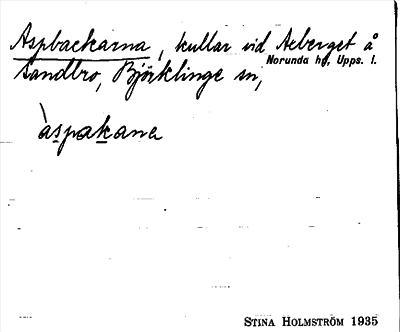 Aspbackarna, kullar vid Aeberget å
Norunda hd, Upps. l.
Sandbro, Björklinge sn,
àspakana
STINA HOLMSTRÖM 1935